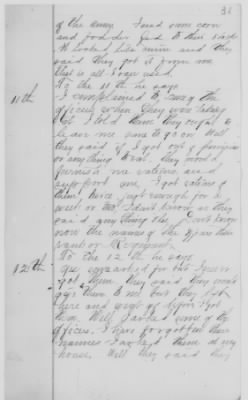 of the army I and some corn
and fodder fed to their stock
it looked like mine and they
said they got it from me
that is all I can use
11th To the 11th he says
I complained to some of the
officers when they were taking
it I told them they ought to
leave me some to go on Well
they said if I got out of provision
or anything to eat they would
furnish me rations and
support me I got rations of
them twice, not enough for a
week or two I don't know as they
said anything else I don't
know the names of the officers their
rank or Regiment
12th To the 12th he says
got them they said they would
give them to me but they
here and
them Well I asked some of the
officers. I have forgotten their
names I asked them at my
house. Well they said they